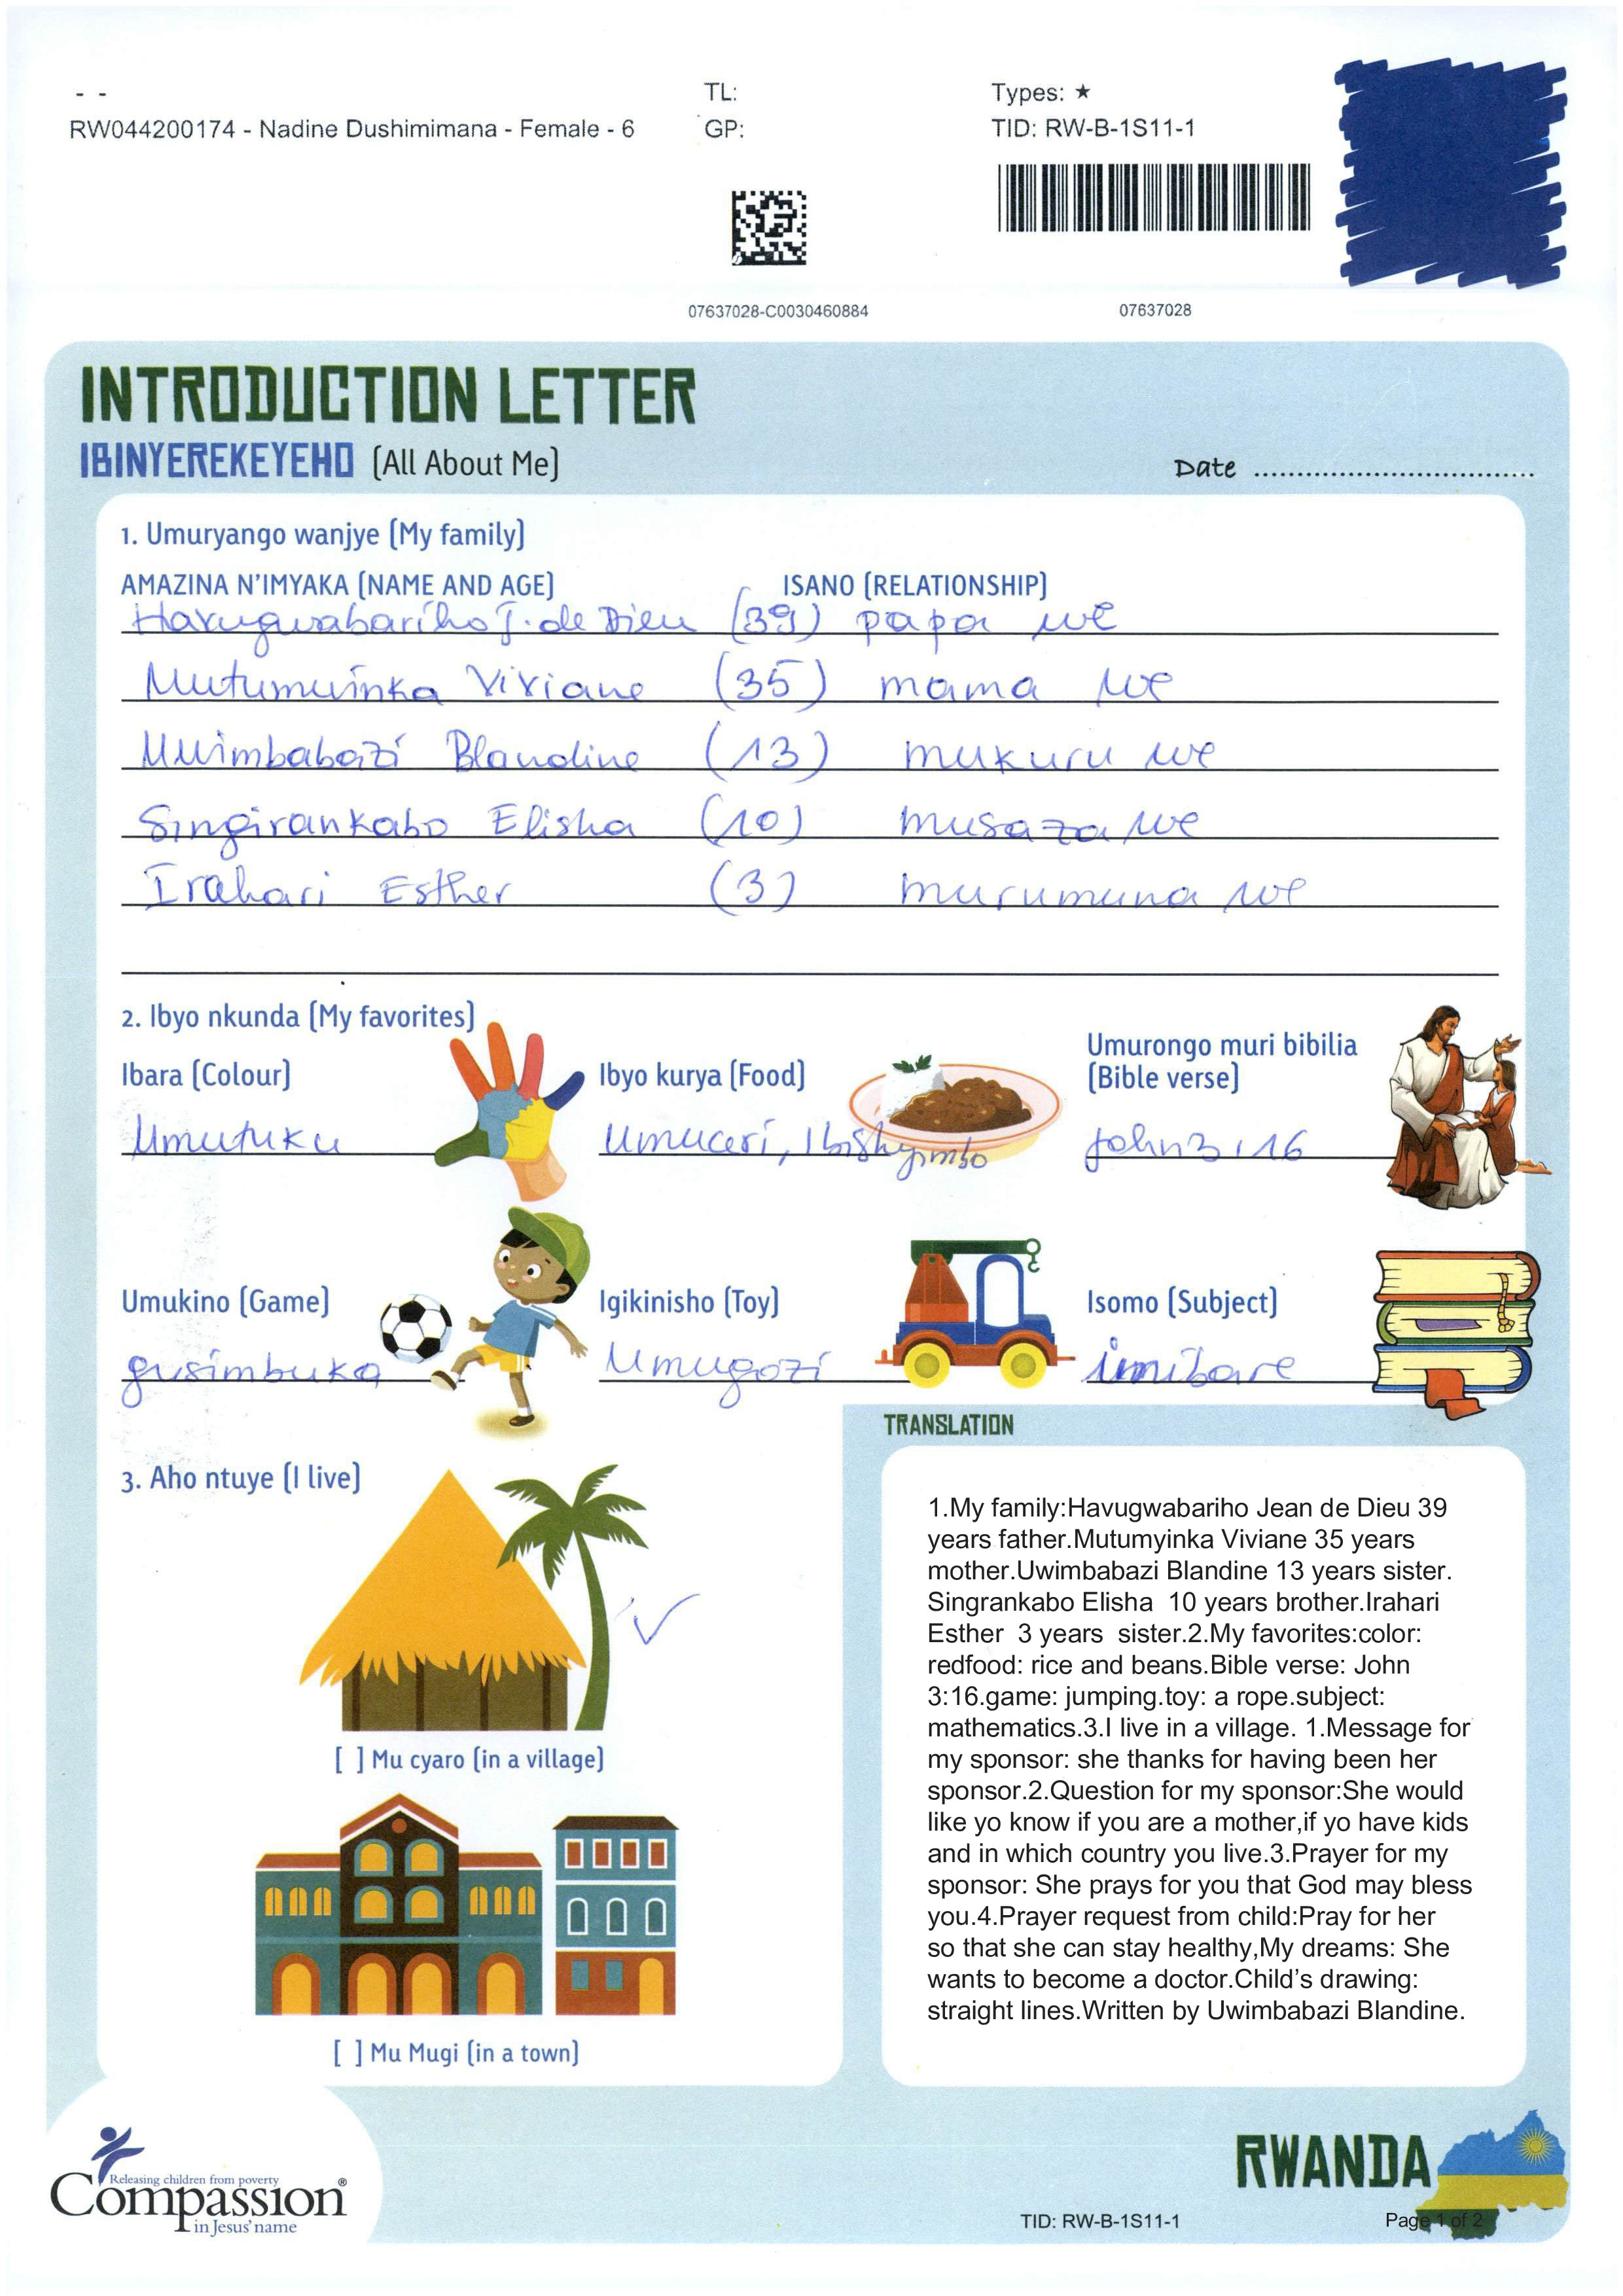 - -
TL:
Types: ★
RW044200174 - Nadine Dushimimana - Female - 6
GP:
TID: RW-B-1S11-1
07637028-C0030460884
07637028
INTRODUCTION LETTER
IBINYEREKEYEHO (All About Me)
Date ................................
1. Umuryango wanjye (My family)
AMAZINA N'IMYAKA (NAME AND AGE)
ISANO (RELATIONSHIP)
Havugwabariho J. de Dieu (39) papa we
Mutumwinka Viviane (35) mama we
Uwimbabazi Blandine (13) mukuru we
Singirankabo Elisha (10) musaza we
Irahari Esther (3) murumuna we
2. Ibyo nkunda (My favorites)
Ibara (Colour)
Ibyo kurya (Food)
Umurongo muri bibilia
(Bible verse)
Umutuku
Umuceri, Ibishyimbo
John 3:16
Umukino (Game)
Igikinisho (Toy)
Isomo (Subject)
gusimbuka
Umugozi
imibare
3. Aho ntuye (I live)
[ ] Mu cyaro (in a village)
[ ] Mu Mugi (in a town)
TRANSLATION
1.My family:Havugwabariho Jean de Dieu 39
years father.Mutumyinka Viviane 35 years
mother.Uwimbabazi Blandine 13 years sister.
Singrankabo Elisha 10 years brother.Irahari
Esther 3 years sister.2.My favorites:color:
redfood: rice and beans.Bible verse: John
3:16.game: jumping.toy: a rope.subject:
mathematics.3.I live in a village. 1.Message for
my sponsor: she thanks for having been her
sponsor.2.Question for my sponsor:She would
like yo know if you are a mother,if yo have kids
and in which country you live.3.Prayer for my
sponsor: She prays for you that God may bless
you.4.Prayer request from child:Pray for her
so that she can stay healthy,My dreams: She
wants to become a doctor.Child's drawing:
straight lines.Written by Uwimbabazi Blandine.
Releasing children from poverty
Compassion®
in Jesus' name
RWANDA
TID: RW-B-1S11-1
Page 1 of 2